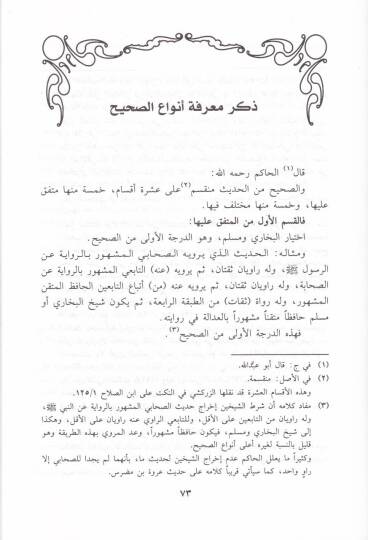 ذكر معرفة أنواع الصحيح
قال(١) الحاكم رحمه الله:
والصحيح من الحديث منقسم(٢) على عشرة أقسام، خمسة منها متفق
عليها، وخمسة منها مختلف فيها.
فالقسم الأول من المتفق عليها:
اختيار البخاري ومسلم، وهو الدرجة الأولى من الصحيح.
ومثاله: الحديث الذي يرويه الصحابي المشهور بالرواية عن
الرسول ﷺ، وله راويان ثقتان، ثم يرويه عنه التابعي المشهور بالرواية عن
الصحابة، وله راويان ثقتان، ثم يرويه عنه (من) أتباع التابعين الحافظ المتقن
المشهور، وله رواة (ثقات) من الطبقة الرابعة، ثم يكون شيخ البخاري أو
مسلم حافظاً متقناً مشهوراً بالعدالة في روايته.
فهذه الدرجة الأولى من الصحيح(٣).
(١) في ج: قال أبو عبدالله.
(٢) في الأصل: منقسمة.
وهذه الأقسام العشرة قد نقلها الزركشي في النكت على ابن الصلاح ١٢٥/١
(٣) مفاد كلامه أن شرط الشيخين إخراج حديث الصحابي المشهور بالرواية عن النبي ﷺ،
وله راويان من التابعين على الأقل، وللتابعي الراوي عنه راويان على الأقل، وهكذا
إلى شيخ البخاري ومسلم، فيكون حافظاً مشهوراً، وعد المروي بهذه الطريقة وهو
قليل بالنسبة لغيره أعلى أنواع الصحيح.
وكثيراً ما يعلل الحاكم عدم إخراج الشيخين لحديث ما، بأنهما لم يجدا للصحابي إلا
راوٍ واحد، كما سيأتي قريباً كلامه على حديث عروة بن مضرس.
٧٣